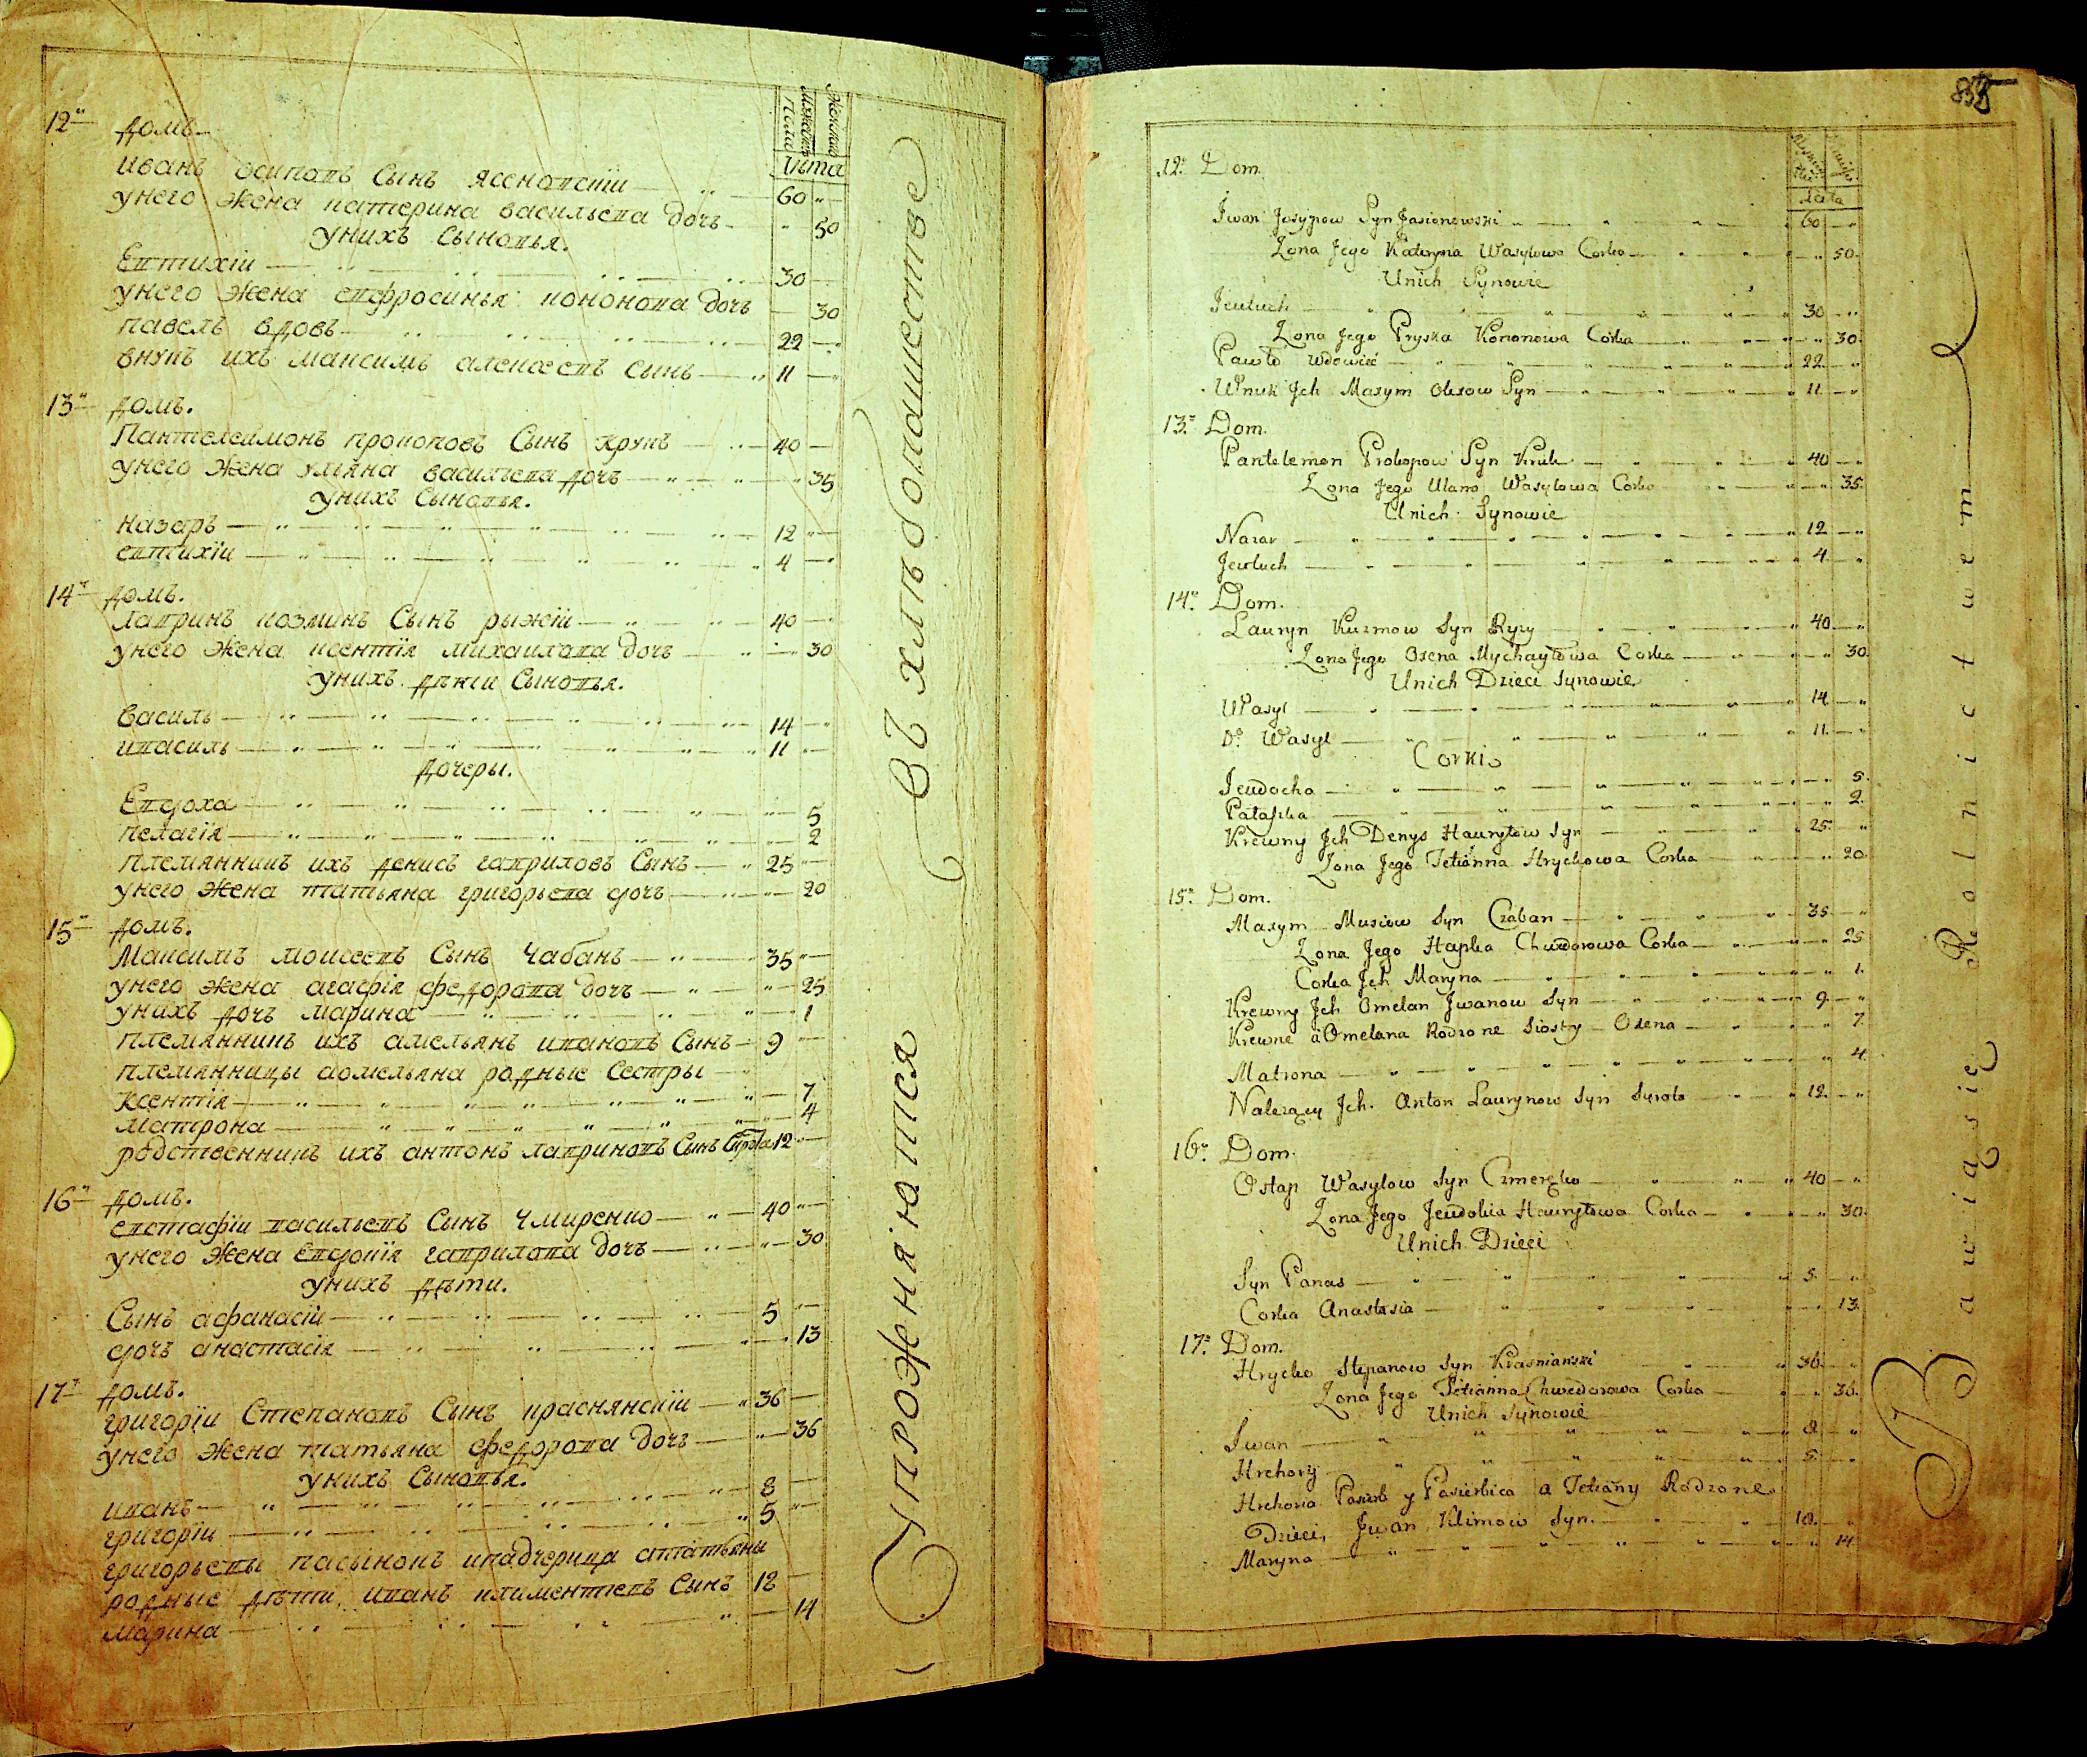 12й домъ
Мужеска Полу
Женска
Лѣта
Иванъ осиповъ Сынъ Ясеновскїй 60
унего Жена катерина васильева дочъ 50
унихъ Сыновья.
Евтихїй 30
унего Жена евфросинья кононова дочъ 30
павелъ вдовъ 22
внукъ ихъ максимъ алексеевъ Сынъ 11
13й домъ.
Пантелеймонъ прокоповъ Сынъ крукъ 40
унего Жена уляна васильева дочъ 35
унихъ Сыновья.
назаръ 12
евтихїй 4
14й домъ.
лавринъ козминъ Сынъ рыжїй 40
унего Жена ксентїя михаилова дочъ 30
унихъ дѣти Сыновья.
василь 14
ивасиль 11
дочеры.
Евдоха 5
пелагїя 2
племянникъ ихъ денисъ гавриловъ Сынъ 25
унего Жена татьяна григорьева дочъ 20
15й домъ.
Максимъ моисеевъ Сынъ Чабанъ 35
унего Жена агафїя федорова дочъ 25
унихъ дочъ марина 1
племянникъ ихъ амельянъ ивановъ Сынъ 9
племянницы аомельяна родные Сестры
Ксентїя 7
матрона 4
родственникъ ихъ антонъ лавриновъ Сынъ Сирота 12
16й домъ.
евстафїй васильевъ Сынъ Чмиренко 40
унего Жена Евдокїя гаврилова дочъ 30
унихъ дѣти.
Сынъ афанасїй 5
дочъ анастасїя 13
17й домъ.
григорїй Степановъ Сынъ краснянскїй 36
унего Жена татьяна федорова дочъ 36
унихъ Сыновья.
иванъ 8
григорїй 5
григорьевы пасынокъ ипадчерица аттатьяны
родные дѣти, иванъ климентевъ Сынъ 18
марина 14
Упроженяются вЪ хлѣбопашестве
12. Dom.
Lata
Jwan Josypow Syn Jasionowski 60
Zona Jego Kateryna Wasylowa Corka 50.
Unich Synowie
Jewtuch 30
Zona Jego Pryska Kononowa Corka 30.
Pawło Wdowiec 22.
Wnuk Jch Maxym Olexow Syn 11.
13. Dom.
Pantelemon Prokopow Syn Kruk 40
Zona Jego Ulana Wasylowa Corka 35.
Unich Synowie
Nazar 12
Jewtuch 4.
14. Dom.
Lauryn Kuzmow Syn Ryzy 40
Zona Jego Oxena Mychayłowa Corka 30.
Unich Dzieci Synowie
Wasyl 14
Do Wasyl 11.
Corki
Jeudocha 5.
Pałaszka 2.
Krewny Jch Denys Hauryłow Syn 25.
Zona Jego Tetianna Hryckowa Corka 20.
15. Dom.
Maxym Musiiow Syn Czaban 35
Zona Jego Hapka Chwedorowa Corka 25
Corka Jch Maryna 1.
Krewny Jch Omelan Jwanow Syn 9.
Krewne a Omelana Rodzone Siostry Oxena 7.
Matrona 4.
Nalezący Jch. Anton Laurynow Syn Syrota 12.
16. Dom.
Ostap Wasylow Syn Czmerenko 40
Zona Jego Jeudokia Hauryłowa Corka 30.
Unich Dzieci
Syn Panas 5.
Corka Anastasia 13.
17. Dom.
Hrycko Stepanow Syn Krasnianski 36.
Zona Jego Tetianna Chwedorowa Corka 36.
Unich Synowie
Jwan 8.
Hrehory 5.
Hrehoria Pasierb y Pasierbica a Tetiany Rodzone
Dzieci, Jwan Klimow Syn. 18.
Maryna 14
Bawią się Rolnictwem